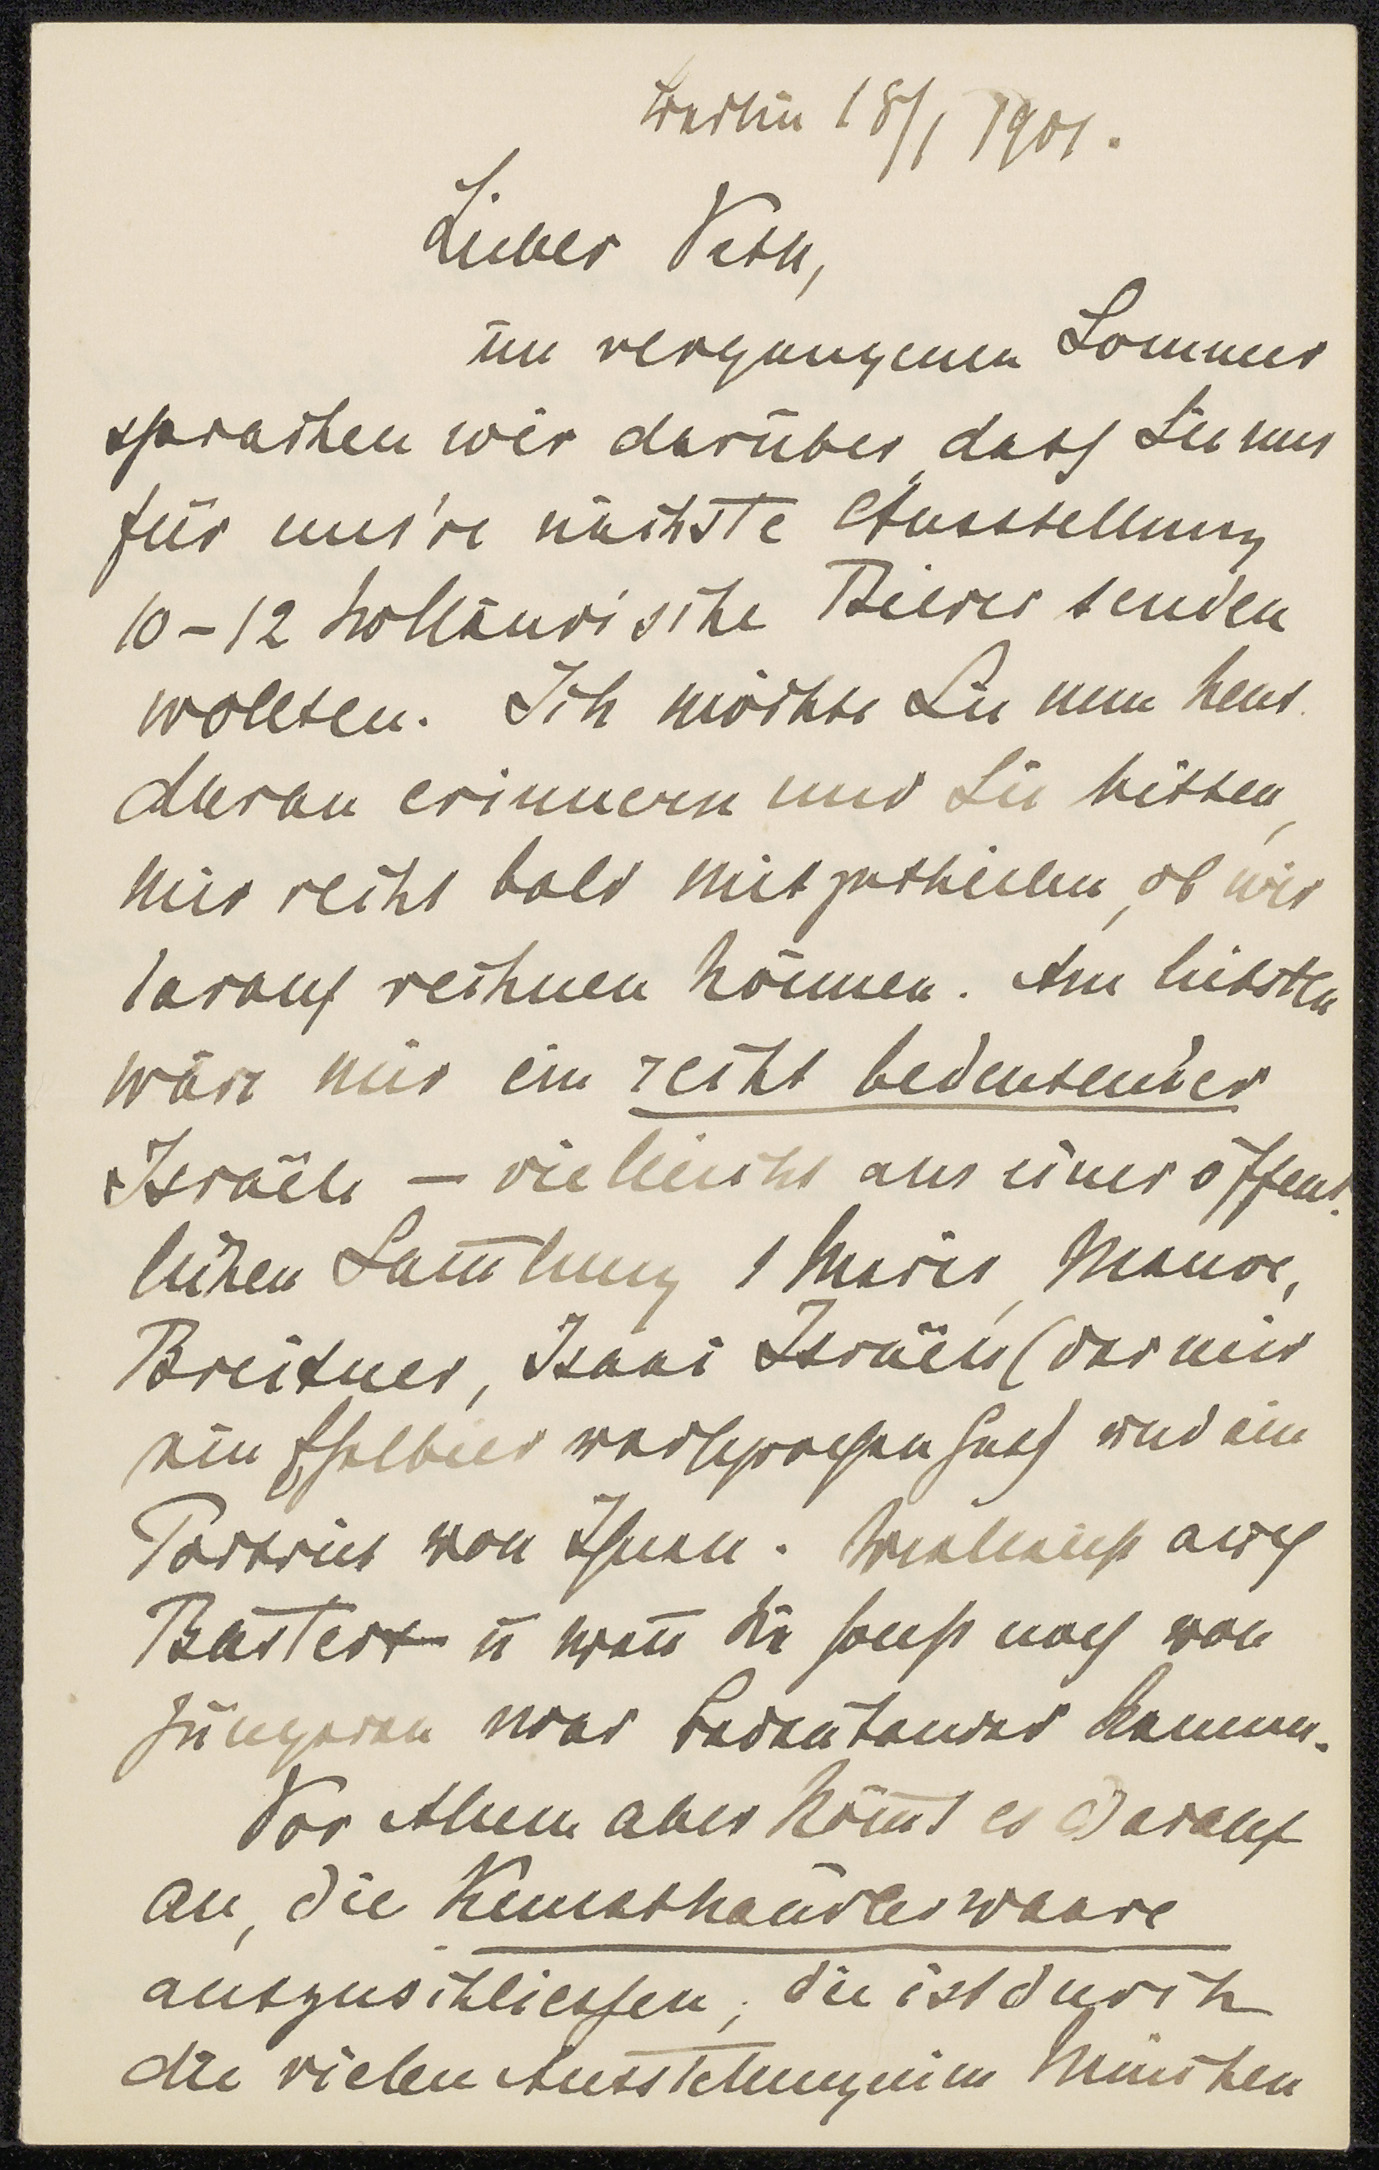 Berlin 18/1 1901.
Lieber Veth,
im vergangenen Sommer
sprachen wir darüber, dass Sie uns
für uns're nächste Ausstellung
10-12 holländische Bilder senden
wollten. Ich möchte Sie nun heut
daran erinnern und Sie bitten,
mir recht bald mitzutheilen, ob wir
darauf rechnen können. Am liebsten
wäre mir ein recht bedeutender
Israëls — vielleicht aus einer öffent-
lichen Sam̅lung 1 Maris, Mauve,
Breitner, Isaac Israëls (der mir
ein Eselbild versprochen hat) und ein
Portrait von Ihnen. Vielleicht auch
Bastert u̅ wen̅ Sie sonst noch von
Jüngeren was Bedeutendes kennen.
Vor Allem aber kom̅t es darauf
an, die Kunsthändlerwaare
auszuschliessen, die ist durch
die vielen Ausstellungen in München